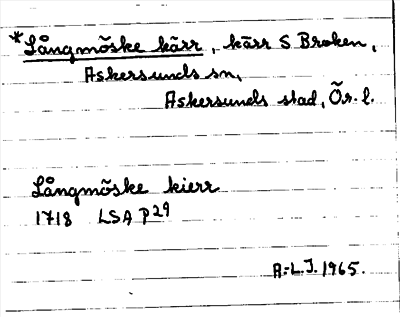 *Långmõske kärr, kärr S Broken,
Askersunds sn,
Askersunds stad, Ör. l.
Långmõske kierr
1718 LSA P29
A-L.J. 1965.